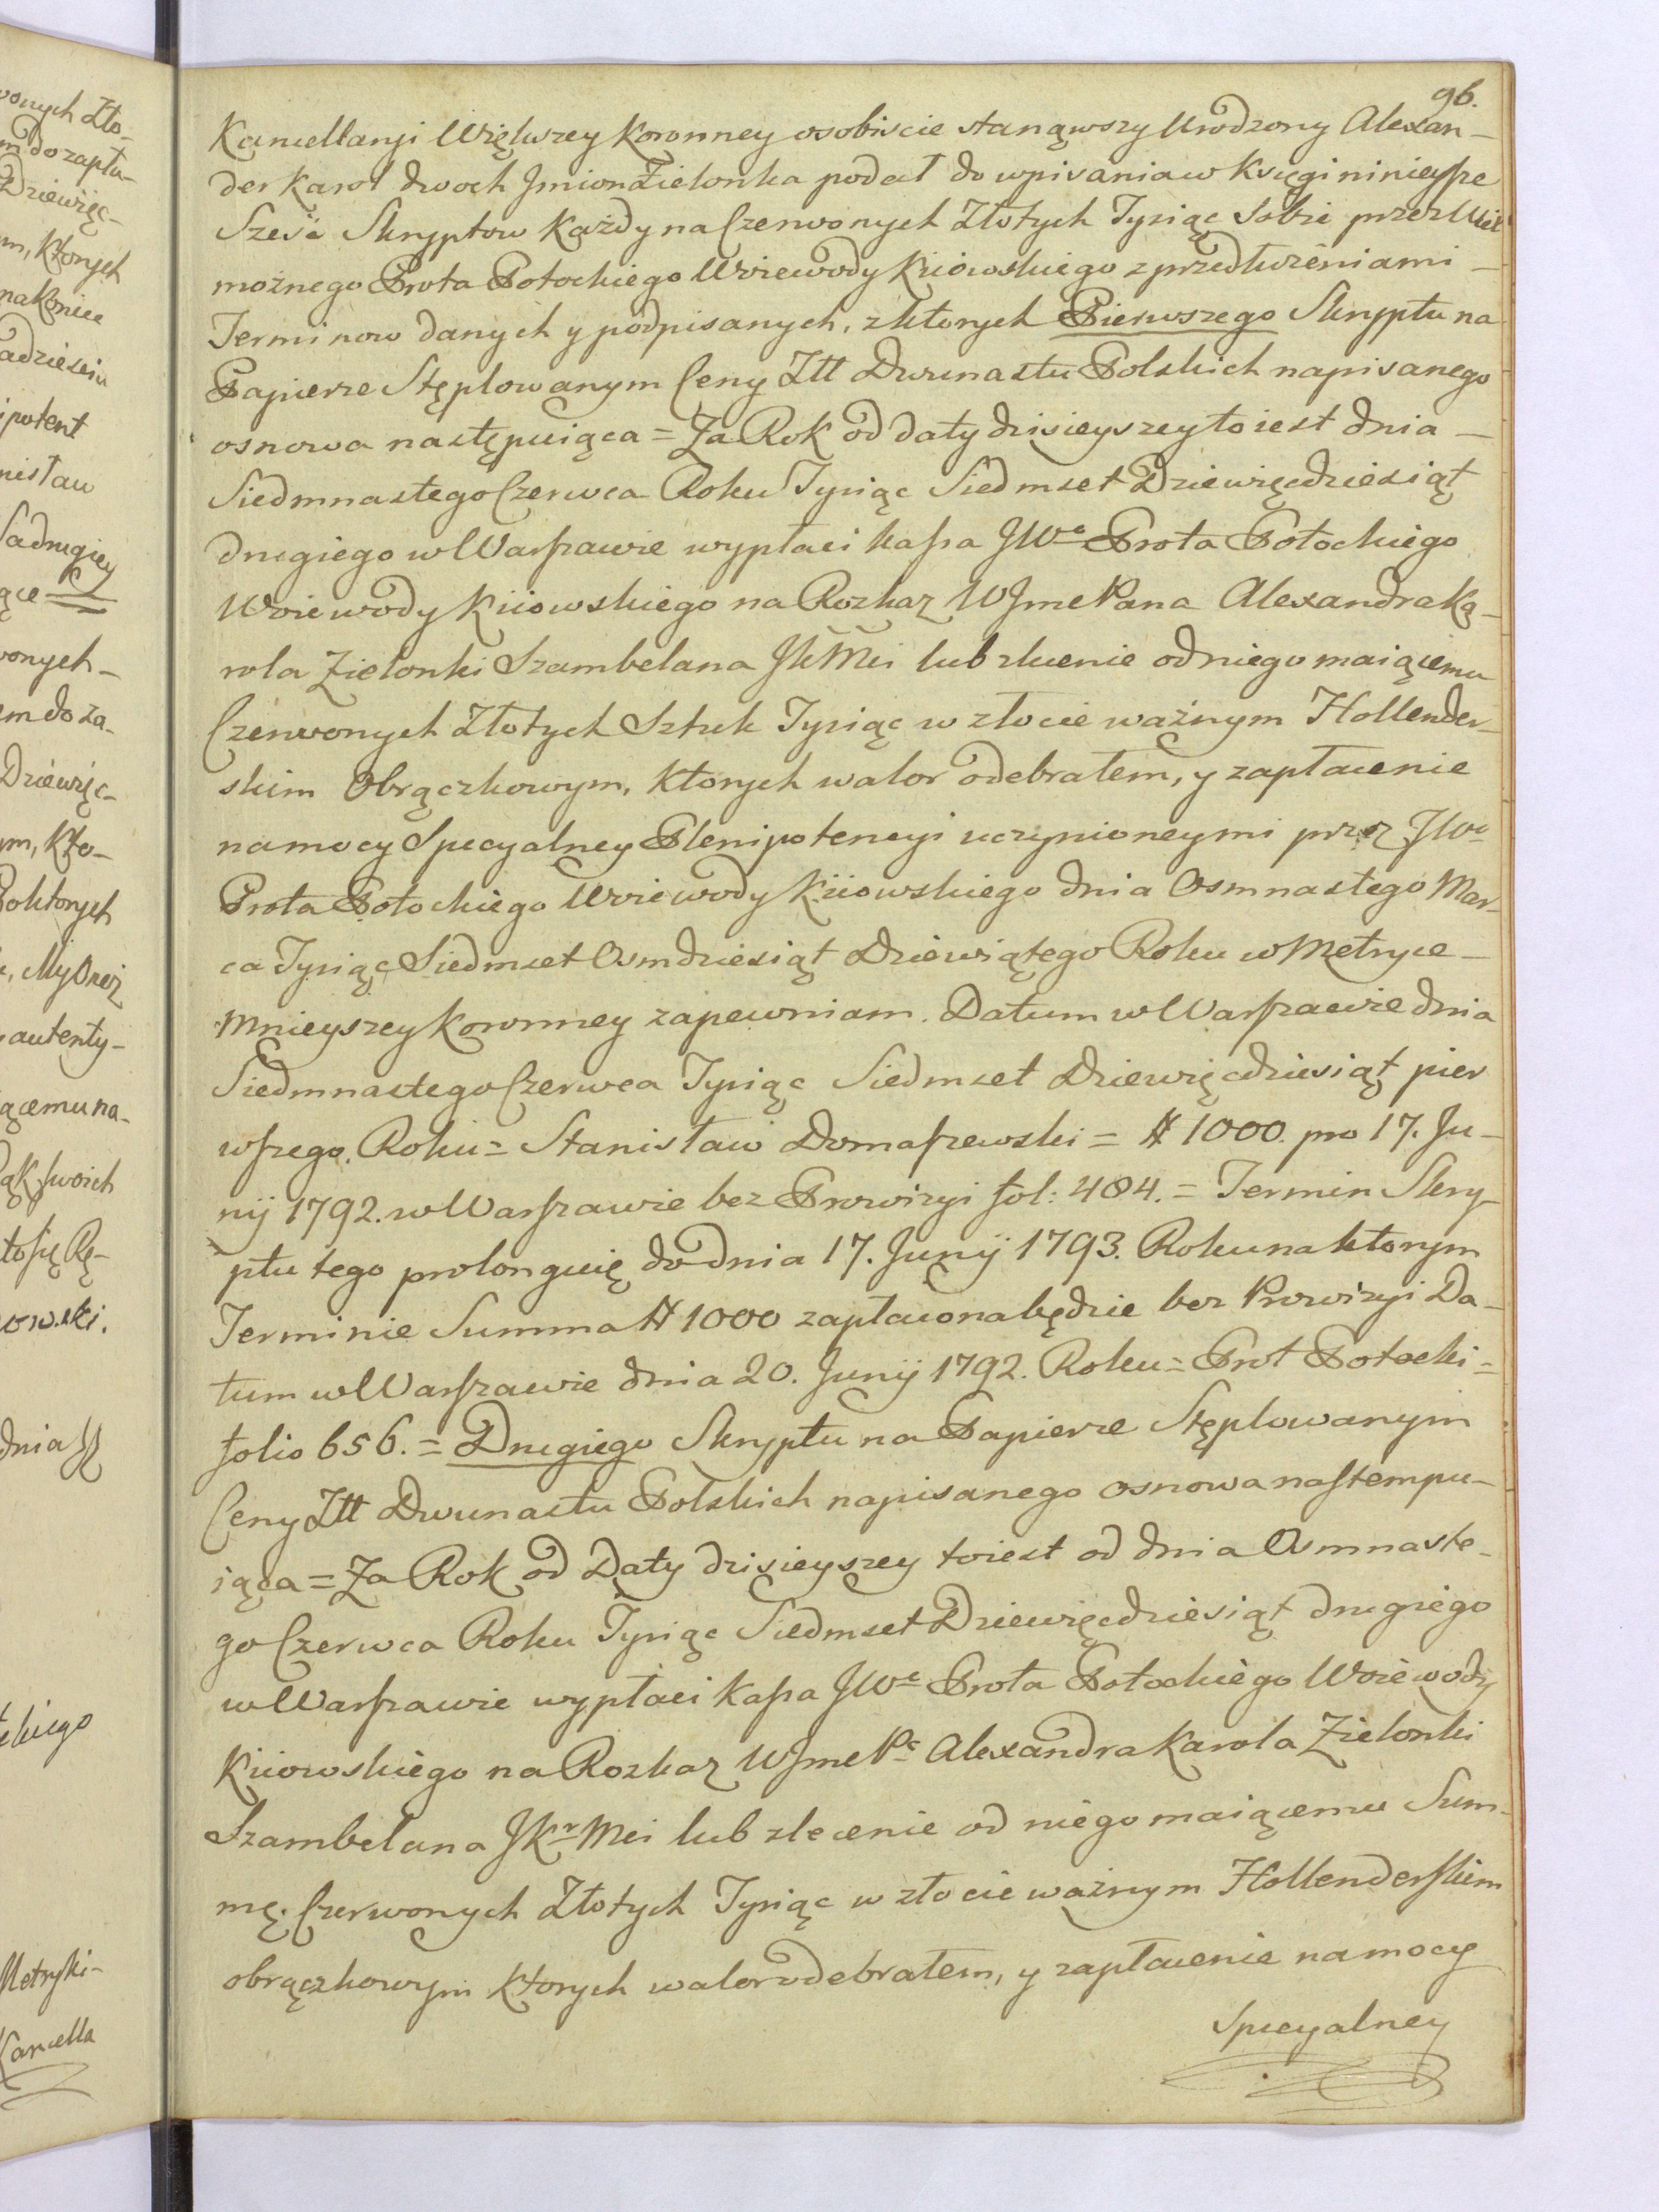 96.
Kancellaryi Więkzey Koronney osobiscie stanąwszy Urodzony Alexan-
der Karol dwoch Jmion Zielonka podał do wpisania w Księgi ninieysze
Sześć Skryptow Każdy na Czerwonych Złotych Tysiąc Sobie przez Wiel
możnego Prota Potockiego Woiewody Kiiowskiego z przedłużeniami -
Terminow danych y podpisanych, z ktorych Pierwszego Skryptu na
Papierze Stęplowanym Ceny Złł Dwunastu Polskich napisanego
osnowa następuiąca = Za Rok od daty dzisieyszey to iest dnia -
Siedmnastego Czerwca Roku Tysiąc Siedmset Dziewięcdziesiąt
drugiego w Warszawie wypłaci kassa JWo Prota Potockiego
Woiewody Kiiowskiego na Rozkaz WJme Pana Alexandra Ka-
rola Zielonki Szambelana JKMci lub zlecenie od niego maiącemu
Czerwonych Złotych Sztuk Tysiąc w złocie ważnym Hollender-
skim Obrączkowym, Ktorych walor odebrałem, y zapłacenie
na mocy Specyalney Plenipotencyi uczynioney mi przez JWo
Prota Potockiego Woiewody Kiiowskiego dnia Osmnastego Mar-
ca Tysiąc Siedmset Osmdziesiąt Dziewiątego Roku w Metryce -
Mnieyszey Koronney zapewniam. Datum w Warszawie dnia
Siedmnastego Czerwca Tysiąc Siedmset Dziewięcdziesiąt pier
wszego Roku = Stanisław Domaszewski = # 1000. pro 17. Ju-
nij 1792. w Warszawie bez Prowizyi fol: 484. = Termin Skry-
ptu tego prolonguię do dnia 17. Junij 1793. Roku na ktorym
Terminie Summa # 1000 zapłacona będzie bez Prowizyi Da-
tum w Warszawie dnia 20. Junij 1792. Roku = Prot Potocki =
folio 656. = Drugiego Skryptu na Papierze Stęplowanym
Ceny Złł Dwunastu Polskich napisanego osnowa nastempu-
iąca = Za Rok od Daty dzisieyszey toiest od dnia Osmnaste-
go Czerwca Roku Tysiąc Siedmset Dziewięcdziesiąt drugiego
w Warszawie wypłaci Kassa JWo Prota Potockiego Woiewody
Kiiowskiego na Rozkaz WJme Pa Alexandra Karola Zielonki
Szambelana JKr Mci lub zlecenie od niego maiącemu Sum-
mę. Czerwonych Złotych Tysiąc w złocie ważnym Hollenderskim
obrączkowym Ktorych walor odebrałem, y zapłacenie na mocy
Specyalney